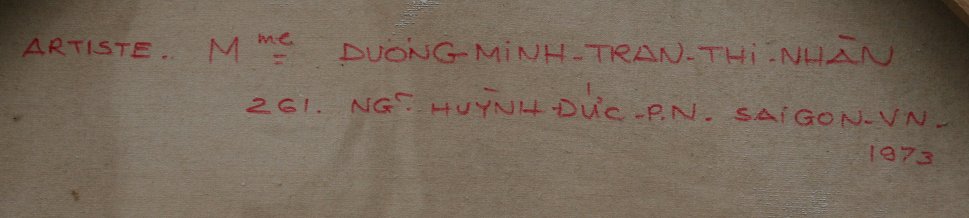 ARTISTE. Mme DƯƠNG-MINH-TRAN-THI-NHÃN
261. NGT. HUỲNH-ĐỨC-P.N. SAIGON-VN-
1973